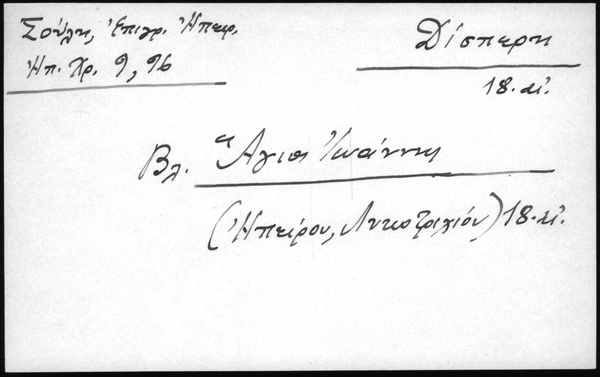 Σούλη, Ἐπιγρ. Ἠπείρ.
Ἠπ. Χρ. 9, 96
Δίσπερη
18. αἰ.
Βλ. Ἅγιοι Ἰωάννης
(Ἠπείρου, Λυκοτρίχιον) 18. αἰ.